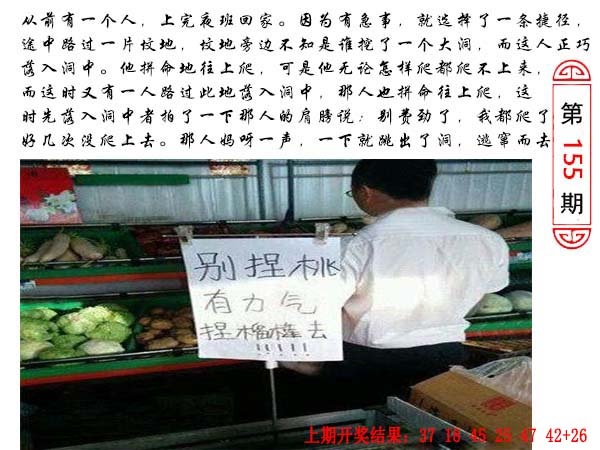 从前有一个人，上完夜班回家。因为有急事，就选择了一条捷径，
途中路过一片坟地，坟地旁边不知是谁挖了一个大洞，而这人正巧
落入洞中。他拼命地往上爬，可是他无论怎样爬都爬不上来，
而这时又有一人路过此地落入洞中，那人也拼命往上爬，这
时先落入洞中者拍了一下那人的肩膀说：别费劲了，我都爬了
好几次没爬上去。那人妈呀一声，一下就跳出了洞，逃窜而去
第
155
期
别捏桃
有力气
捏榴梿去
!!!!!
上期开奖结果：37 18 45 28 47 42+26